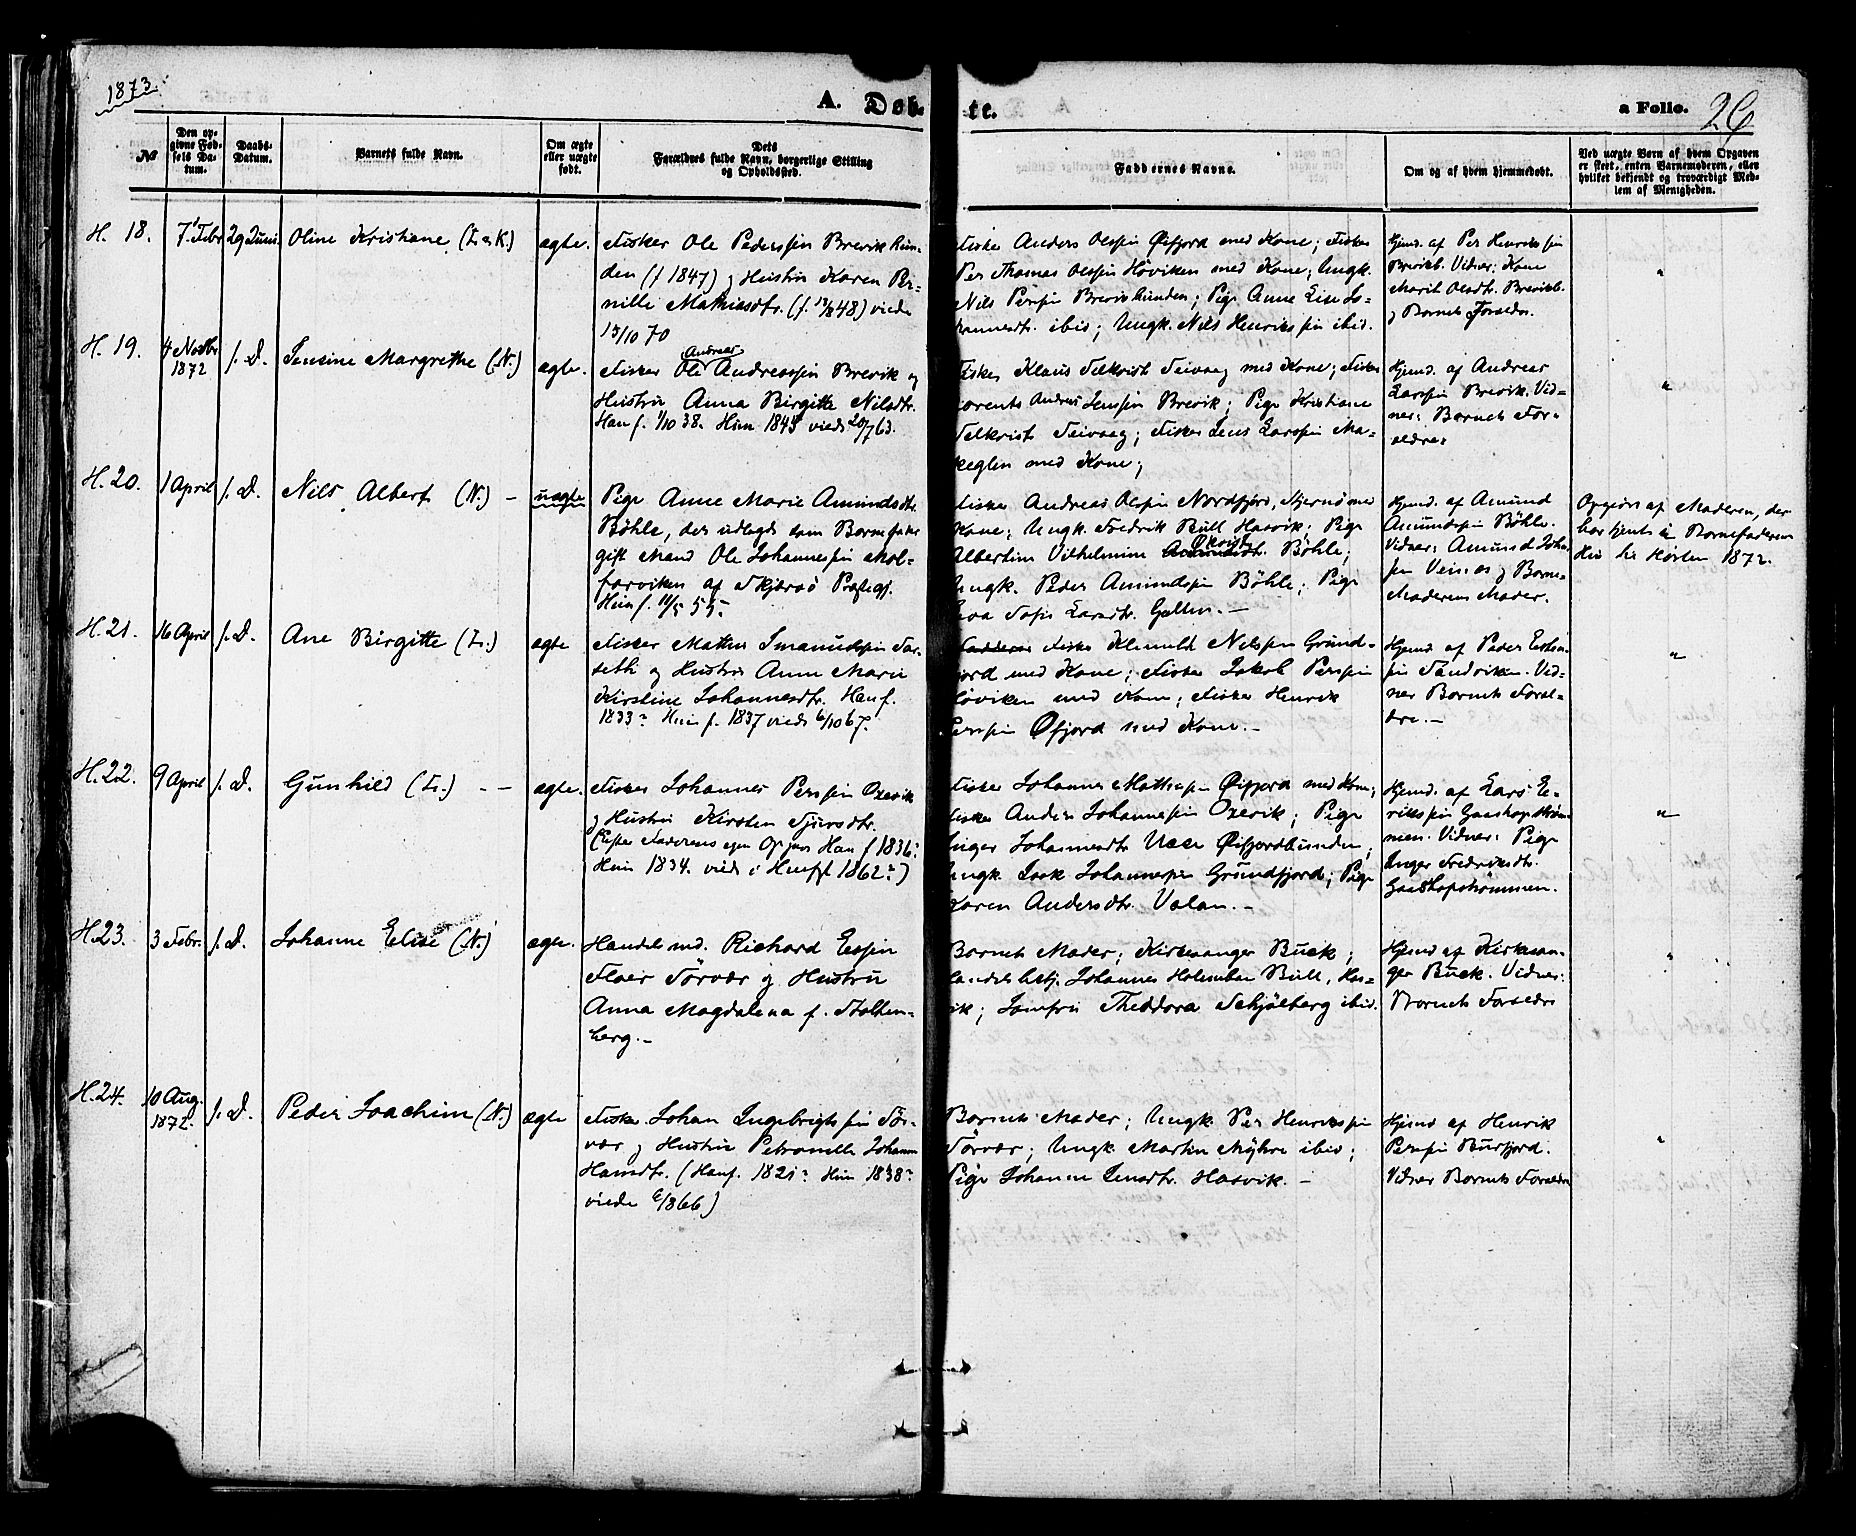 1873.
A. Døb-
te.
a Folio. 26
№
Den op-
givne Fød-
sels Da-
tum.
Daabs-
Datum.
Barnets fulde Navn.
Om ægte
eller uægte
født.
Dets
Forældres fulde Navn, borgerlige Stilling
og Opholdssted.
Faddernes Navne.
Om og af hvem hjemmedøbt.
Ved uægte Børn af hvem Opgaven
er skeet, enten Barnemoderen, eller
hvilket bekjendt og troværdigt Med-
lem af Menigheden.
H. 18.
7 Febr
29 Juni
Oline Kristiane (L. & K.)
ægte.
Fisker Ole Pederssøn Brevikbun-
den (f 1847) og Hustru Karen Per-
nille Mathiasdtr. (f. 48) viede
15/10 70
Fisker Anders Olssøn Øifjord med Kone; Fisker
Per Thomas Olssøn Høviken med Kone; Ungk.
Nils Perssøn Brevikbunden; Pige Anne Lise Jo-
hannesdtr. ibid; Ungk. Nils Henrikssøn ibid.
Hjmd. af Per Henrikssøn
Brevikb. Vidner: Kone
Marit Olsdtr. Brevikb.
og Barnets Forældre.
"
H. 19.
4 Novbr
1872
s. D.
Jensine Margrethe (N.)
ægte.
Andreas
Fisker Ole Andreassøn Brevik og
Hustru Anna Birgitte Nilsdtr.
Han f. 1/10 38. Hun 1845 viede 20/7 63.
Fisker Klaus Felkvist Seivaag med Kone; Fisker
Lorents Andreas Jenssøn Brevik; Pige Kristiane
Felkvist Seivaag; Fisker Jens Larssøn Ma-
keglen med Kone;
Hjmd. af Andreas
Larssøn Brevik. Vid-
ner: Barnets For-
ældre.
"
H. 20.
1 April
s. D.
Nils Albert (N.) -
uægte
Pige Anne Marie Amundsdtr.
Böhle, der udlagde som Barnefader
gift Mand Ole Johannessøn Mol-
farviken af Skjærvø Præstegj.
Hun f. 11/5 55.
Fisker Andreas Olssøn Nordfjord, Stjernø med
Kone; Ungk. Fredrik Bull Hasvik; Pige
Albertine Vilhelmine Amundsdtr. Böhle;
Ungk. Peder Amundssøn Böhle; Pige
Eva Sofie Larsdtr. Galten. -
Hjmd. af Amund
Amundssøn Böhle.
Vidner: Amund John-
søn Veines og Barne-
Moderens Moder.
Opgivn. af Moderen, der
har tjent i Barnefaderens
Hus til Høsten 1872.
H. 21.
16 April
s. D.
Ane Birgitte (L.)
ægte
Fisker Mathis Imanuelssøn Sar-
seth og Hustru Anne Marie
Kirstine Johannesdtr. Han f.
1833. Hun f. 1837 viede 6/10 67.
Fisker Klemet Nilssøn Grund-
fjord med Kone; Fisker Jakob Perssøn
Høviken med Kone; Fisker Henrik
Perssøn Øfjord med Kone. -
Hjmd. af Peder
Sandviken. Vid-
ner Barnets Foræl-
dre. -
"
H. 22.
9 April
s. D.
Gunhild (L.) - -
ægte.
Fisker Johannes Perssøn Oxevik
og Hustru Kirsten Sjursdtr.
(Efter Faderens egen Opgave Han f 1836
Hun 1834. viede i Hmfst 1862.)
Fisker Johannes Mathissøn Øifjord med Kone;
Fisker Anders Johannessøn Oxevik; Pige
Inger Johannesdtr. Øifjordbunden;
Ungk. Isak Johannessøn Grundfjord; Pige
Karen Andersdtr. Valan. -
Hjmd. af Lars E-
rikssøn Gaashopstrøm-
men. Vidner: Pige
Inger Fredriksdtr.
Gaashopstrømmen.
"
H. 23.
3 Febr.
s. D.
Johanne Elise (N.)
ægte.
Handelsmd. Richard
Floer Sørvær og Hustru
Anna Magdalena f. Stolten-
berg. -
Barnets Moder; Kirkesanger Buck;
Handelsbetj. Johannes Holmboe Bull, Has-
vik; Jomfru Theodora Schjølberg ibid.
Hjmd af Kirkesan-
ger Buck. Vidner:
Barnets Forældre
"
H. 24.
10 Aug.
1872.
s. D.
Peder Joachim (N.)
ægte
Fisker Johan Ingebrigtssøn Sør-
vær og Hustru Petronelle Johanne
Hansdtr. (Han f. 1821. Hun 1838.
viede 1866)
Barnets Moder; Ungk. Per Henrikssøn
Sørvær; Ungk. Martin Myhre ibid;
Pige Johanne Jensdtr. Hasvik. -
Hjmd af Henrik
Perssøn Burfjord.
Vidner Barnets Forældre
"